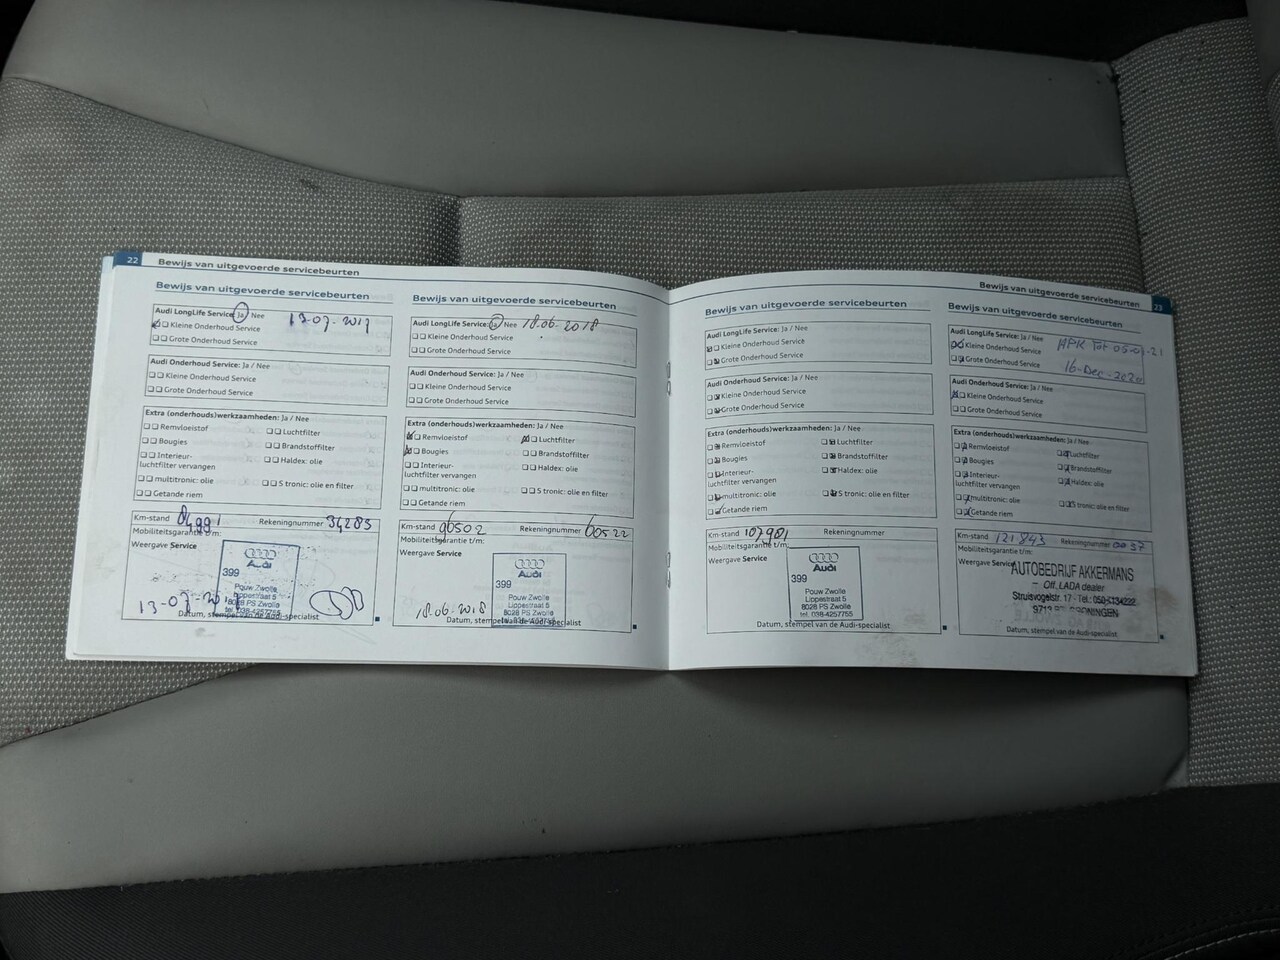 22 Bewijs van uitgevoerde servicebeurten
Bewijs van uitgevoerde servicebeurten
Audi LongLife Service: Ja / Nee
13-07-2017
Kleine Onderhoud Service
Grote Onderhoud Service
Audi Onderhoud Service: Ja / Nee
Kleine Onderhoud Service
Grote Onderhoud Service
Extra (onderhouds)werkzaamheden: Ja / Nee
Remvloeistof Luchtfilter
Bougies Brandstoffilter
Interieur- Haldex: olie
luchtfilter vervangen
multitronic: olie S tronic: olie en filter
Getande riem
Km-stand 84991 Rekeningnummer 34283
Mobiliteitsgarantie t/m:
Weergave Service
Audi
399
Pouw Zwolle
Lippestraat 5
8028 PS Zwolle
tel. 038-4257755
13-07-2017
Datum, stempel van de Audi-specialist
Bewijs van uitgevoerde servicebeurten
Audi LongLife Service: Ja / Nee 18.06.2018
Kleine Onderhoud Service
Grote Onderhoud Service
Audi Onderhoud Service: Ja / Nee
Kleine Onderhoud Service
Grote Onderhoud Service
Extra (onderhouds)werkzaamheden: Ja / Nee
Remvloeistof Luchtfilter
Bougies Brandstoffilter
Interieur- Haldex: olie
luchtfilter vervangen
multitronic: olie S tronic: olie en filter
Getande riem
Km-stand 96502 Rekeningnummer 60522
Mobiliteitsgarantie t/m:
Weergave Service
Audi
399
Pouw Zwolle
Lippestraat 5
8028 PS Zwolle
18.06.2018
Datum, stempel van de Audi-specialist
Bewijs van uitgevoerde servicebeurten 23
Bewijs van uitgevoerde servicebeurten
Audi LongLife Service: Ja / Nee
Kleine Onderhoud Service
Grote Onderhoud Service
Audi Onderhoud Service: Ja / Nee
Kleine Onderhoud Service
Grote Onderhoud Service
Extra (onderhouds)werkzaamheden: Ja / Nee
Remvloeistof Luchtfilter
Bougies Brandstoffilter
Interieur- Haldex: olie
luchtfilter vervangen
multitronic: olie S tronic: olie en filter
Getande riem
Km-stand 107981 Rekeningnummer
Mobiliteitsgarantie t/m:
Weergave Service
Audi
399
Pouw Zwolle
Lippestraat 5
8028 PS Zwolle
tel. 038-4257755
Datum, stempel van de Audi-specialist
Bewijs van uitgevoerde servicebeurten
Audi LongLife Service: Ja / Nee
Kleine Onderhoud Service
Grote Onderhoud Service
16-Dec-2020
Audi Onderhoud Service: Ja / Nee
Kleine Onderhoud Service
Grote Onderhoud Service
Extra (onderhouds)werkzaamheden: Ja / Nee
Remvloeistof Luchtfilter
Bougies Brandstoffilter
Interieur- Haldex: olie
luchtfilter vervangen
multitronic: olie S tronic: olie en filter
Getande riem
Km-stand 121843 Rekeningnummer 0037
Mobiliteitsgarantie t/m:
Weergave Service
AUTOBEDRIJF AKKERMANS
- Off. LADA dealer
Struisvogelstr. 17 - Tel.:
GRONINGEN
Datum, stempel van de Audi-specialist